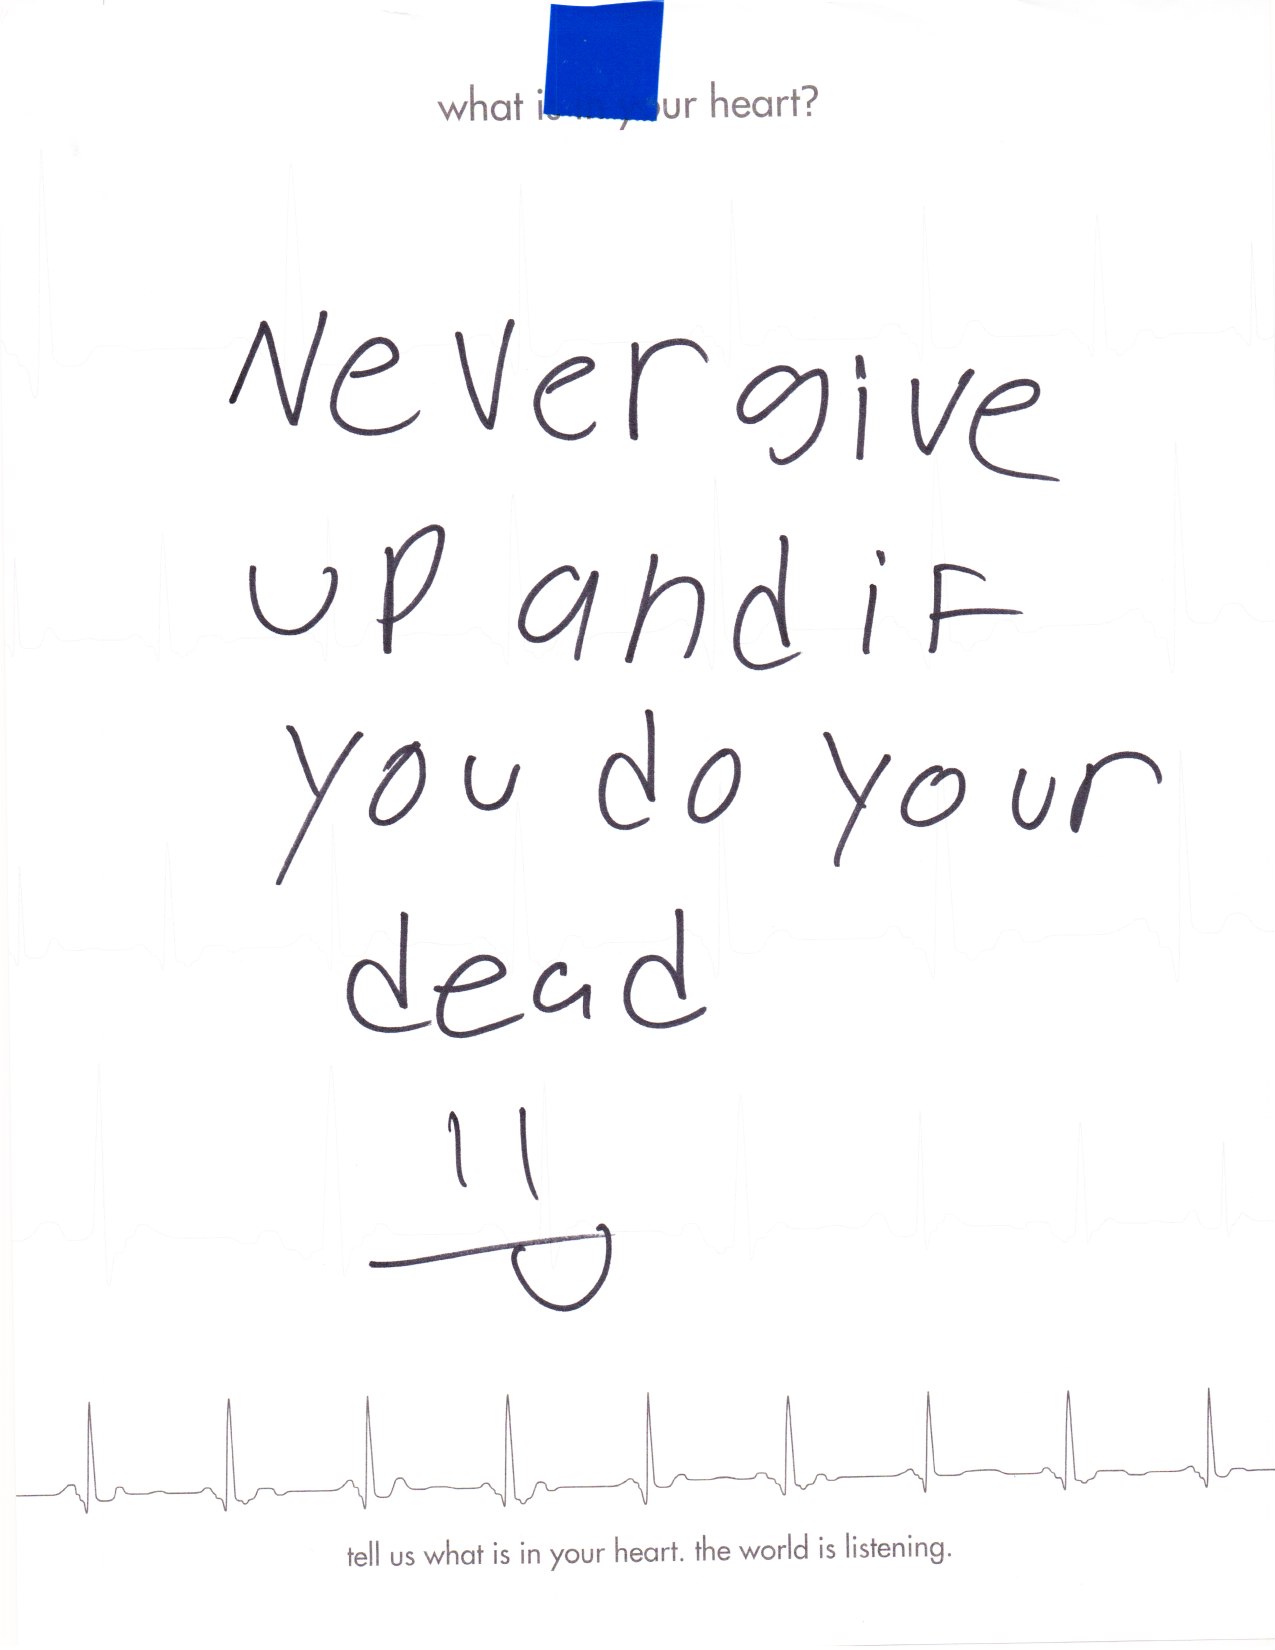 what is in your heart?
Never give
up and if
you do your
dead
tell us what is in your heart. the world is listening.